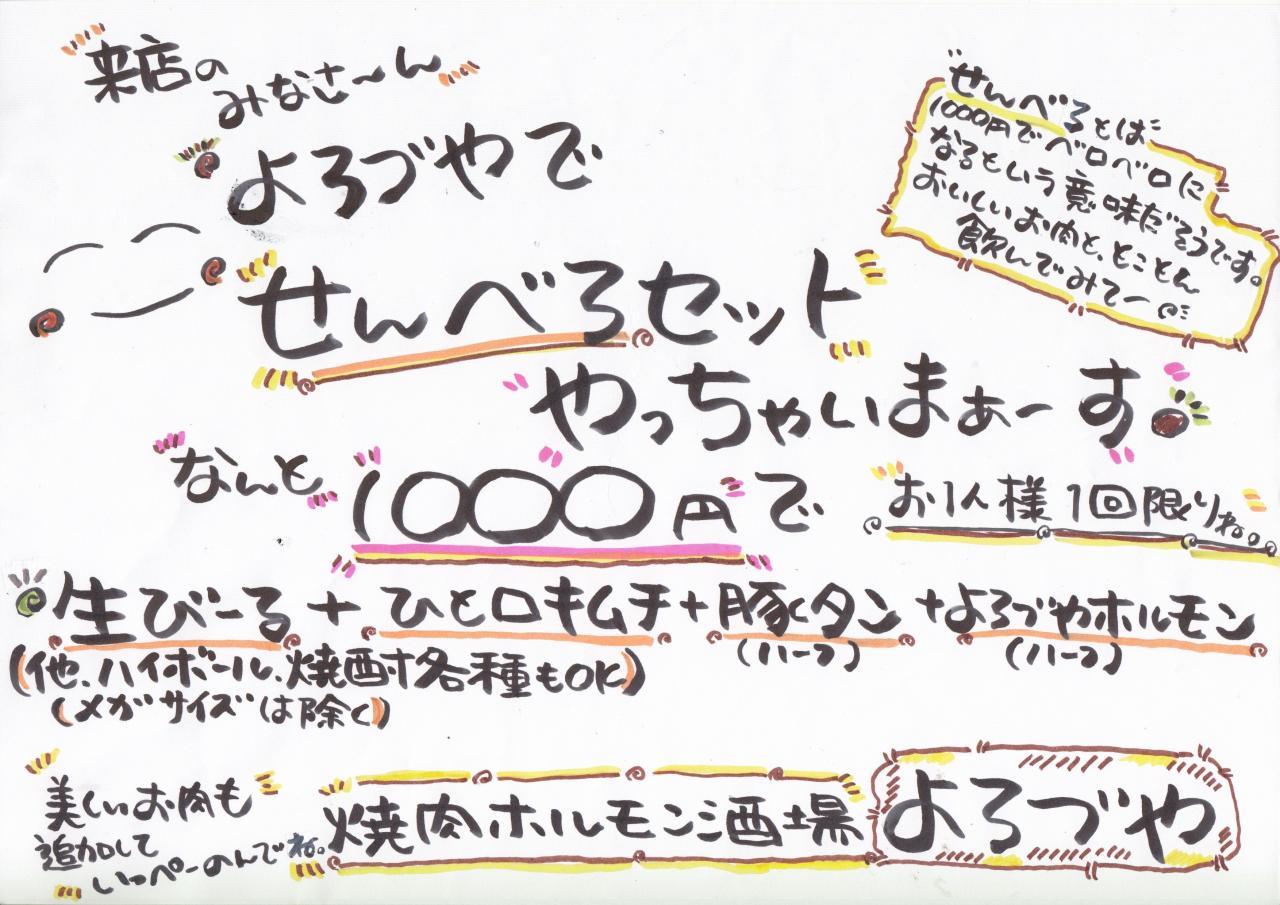 来店の
みなさ〜ん
よろづやで
せんべろセット
やっちゃいまぁーす。
"せんべろとは"
1000円でベロベロに
なるという意味だそうです。
おいしいお肉と、とことん
飲んでみてー
なんと
1000円で
お1人様1回限りね。
生びーる+ひと口キムチ+豚タン+よろづやホルモン
(ハーフ) (ハーフ)
(他、ハイボール、焼酎各種もOK)
(メガサイズは除く)
美しいお肉も
追加して
いっぺーのんでね。
焼肉ホルモン酒場
よろづや